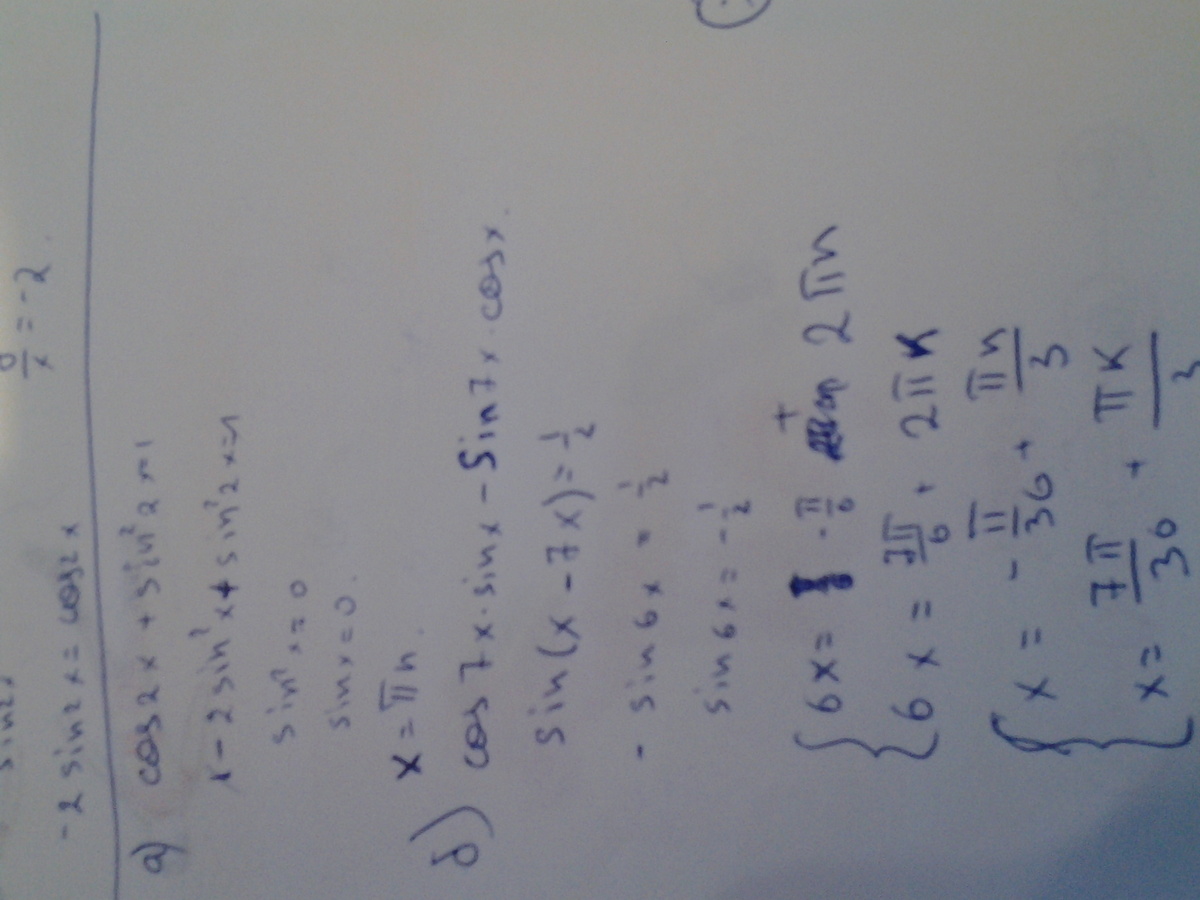 -2 sin2x = cos2x
а) cos2x + sin²2x=1
1-2sin²x+sin²2x=1
sin²x=0
sinx=0.
x=πn.
б) cos7x·sinx - sin7x·cosx.
sin(x-7x)=1/2
-sin6x = 1/2
sin6x=-1/2
{ 6x= -π/6 + 2πn
6x = 7π/6 + 2πk
{ x = -π/36 + πn/3
x= 7π/36 + πk/3